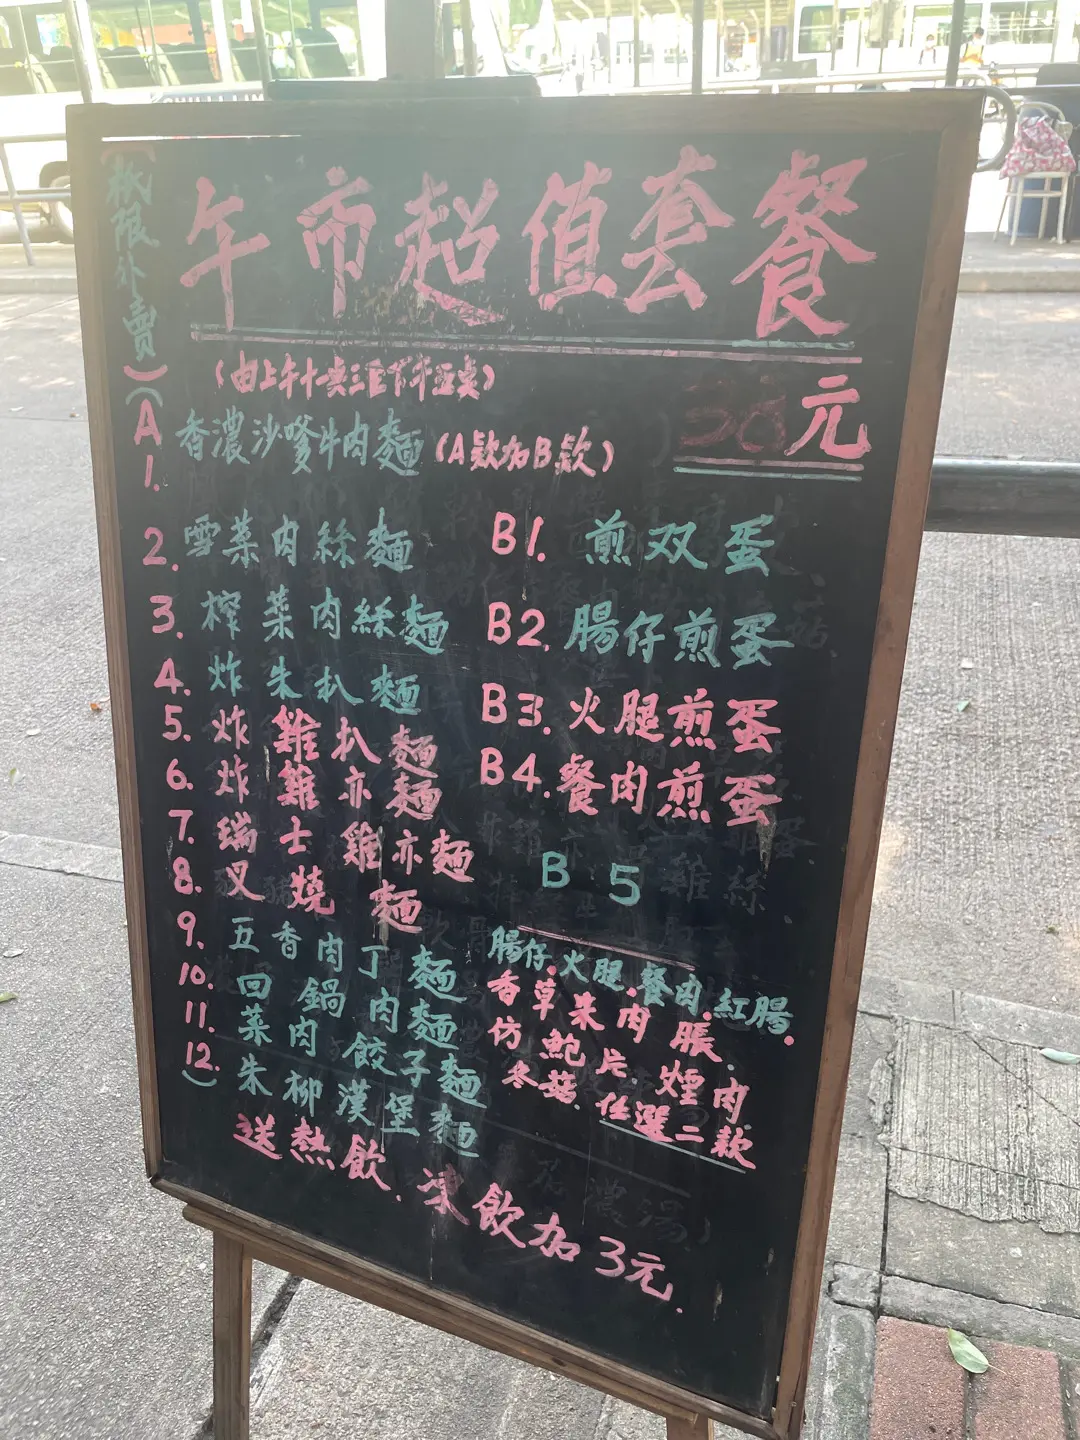 (祇限外賣)
午市超值套餐
(由上午十一奌三至下午五奌)
元
(A款加B款)
(A
1. 香濃沙爹牛肉麵
2. 雪菜肉絲麵
3. 榨菜肉絲麵
4. 炸朱扒麵
5. 炸雞扒麵
6. 炸雞亦麵
7. 瑞士雞亦麵
8. 叉燒麵
9. 五香肉丁麵
10. 回鍋肉麵
11. 菜肉餃子麵
12. 朱柳漢堡麵
)
B1. 煎双蛋
B2. 腸仔煎蛋
B3. 火腿煎蛋
B4. 餐肉煎蛋
B5
腸仔.火腿.餐肉.紅腸.
香草朱肉脹.煙肉.
仿鮑片.
冬菇.任選二款
送熱飲.凍飲加3元.